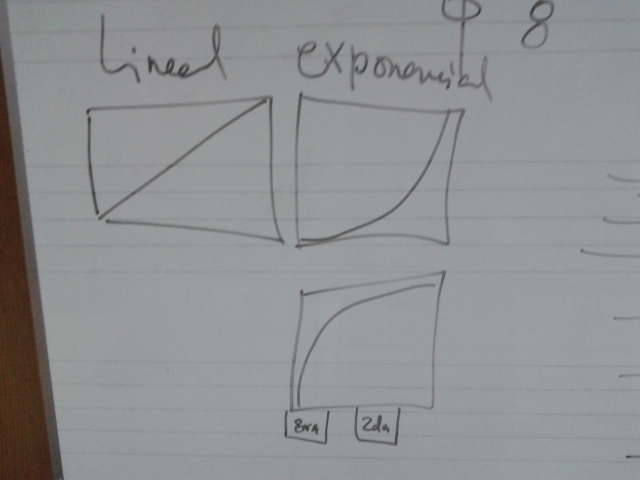 φ 8
Lineal exponencial
8va 2da